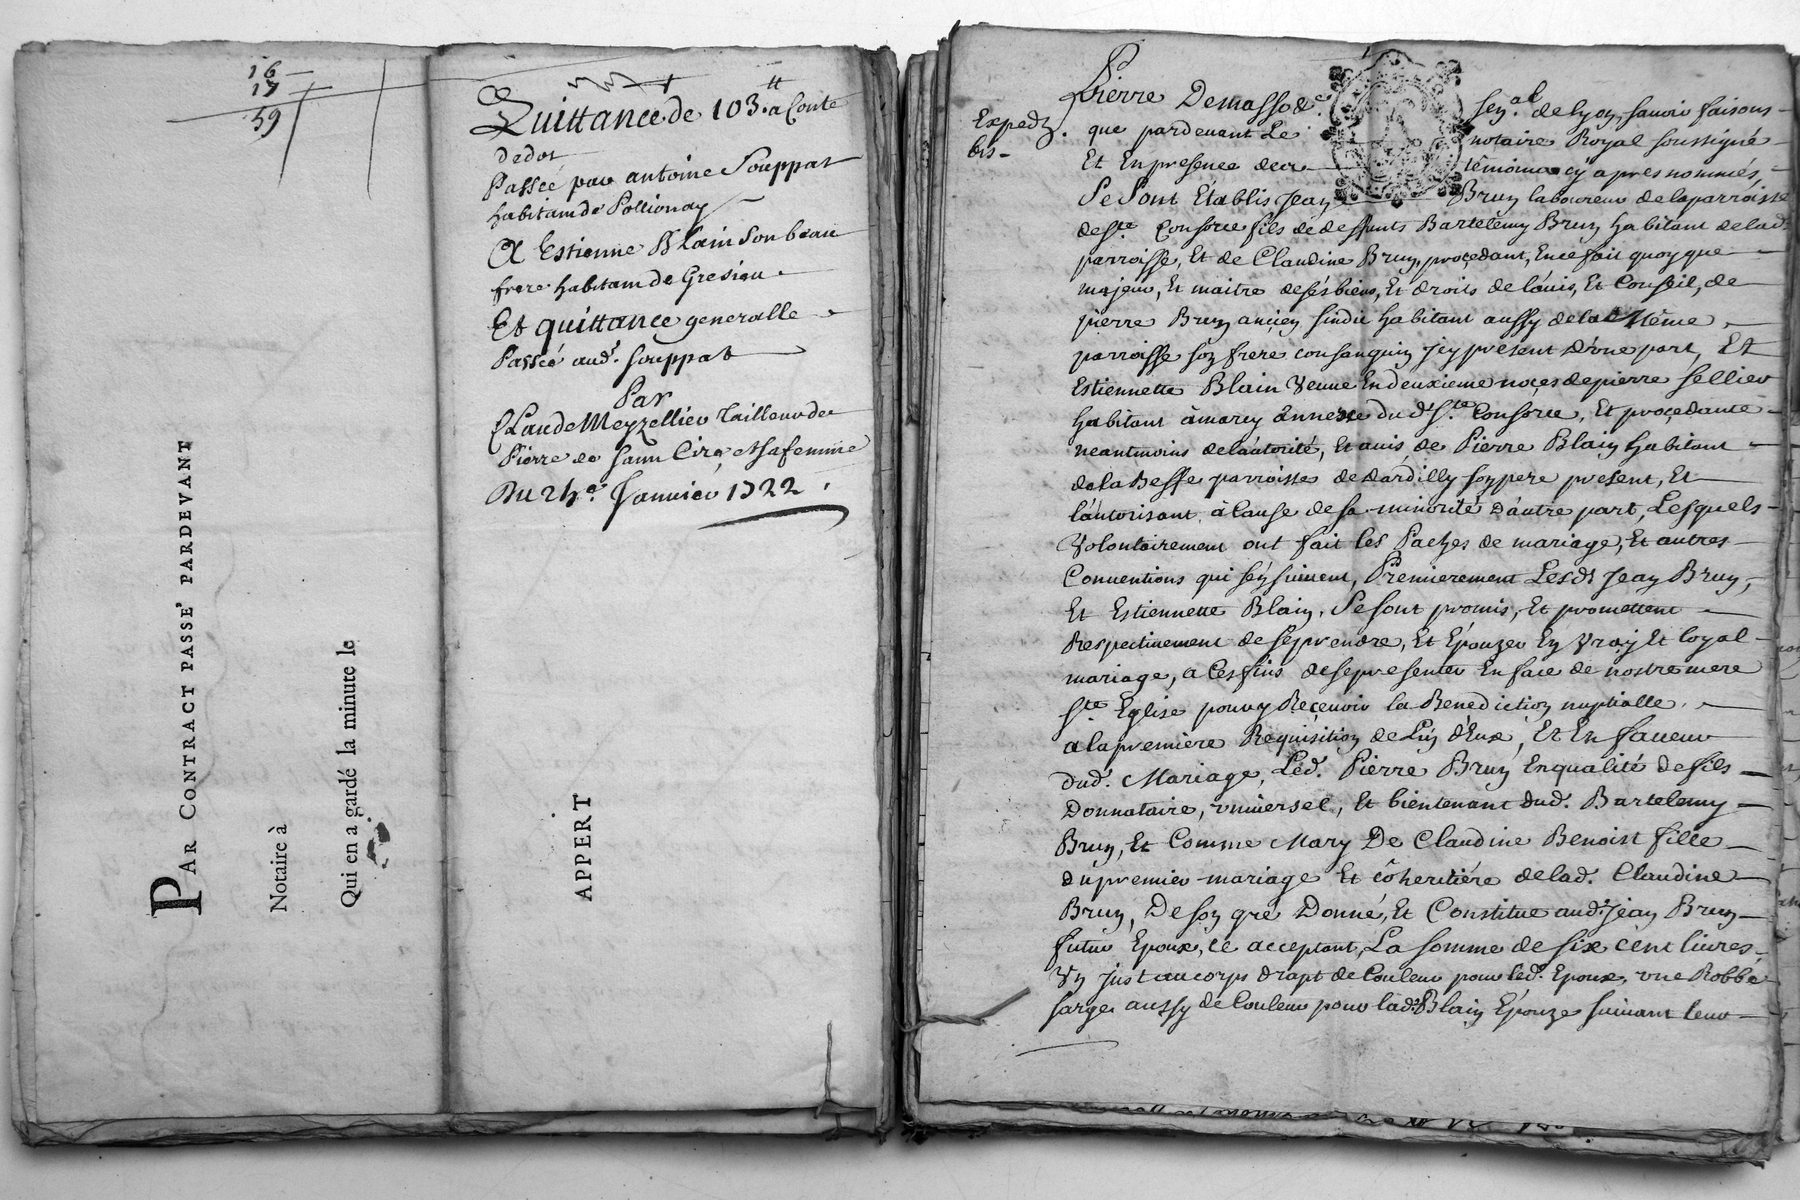 16
17
59
PAR CONTRACT PASSE' PARDEVANT
Notaire à
Qui en a gardé la minute le
APPERT
Quittance de 103.tt a Conte
de dot
Passeé par antoine Souppat
habitam de Pollionay
A Estienne Blain Son beau
frere habitam de Gresieu
Et quittance generalle
Passeé aud. Souppat
Par
Claude Meyzellieu tailleur de
Pierre de saint Cire et sa femme
Du 24e. Janvier 1722
Expedz.
bis
Pierre Demasso &c. senal. de lyon, savoir faisons
que pardevant Le notaire Royal soussigné
Et En presence des témoins cy apres nommés,
Se Sont Etablis Jean Brun laboureur de la parroisse
de Ste. Consorce fils de deffunts Bartelemy Brun habitant de lad.
parroisse, Et de Claudine Brun, procedant, En ce fait quoyque
majeur, Et maitre de ses biens, Et droits de l'avis, Et Conseil, de
pierre Brun ancien sindic habitant aussy de la Même
parroisse son frere consanguin, Jcy present D'une part, Et
Estiennette Blain Veuve En deuxieme noçes de pierre Sellier
habitant à marcy annexe du d. Ste. Consorce, Et proçedante
neantmoins de l'autorité, Et avis, de Pierre Blain habitant
de la Besse parroisse de dardilly son pere present, Et
l'autorisant à Cause de sa minorité D'autre part, Lesquels
Volontairement ont fait les Paches de mariage, Et autres
Conventions qui s'ensuivent, Premierement Lesds. Jean Brun,
Et Estiennette Blain, Se sont promis, Et promettent
Respectivement de se prendre, Et Epouzer En vray Et loyal
mariage, a Ces fins de se presenter En face de nostre mere
Ste. Eglise pour y Reçevoir la Benediction nuptialle
a la premiere Requisition de L'un d'Eux, Et En faveur
dud. Mariage, Led. Pierre Brun En qualité de fils
Donnataire, vniversel, Et bientenant dud. Bartelemy
Brun, Et Comme Mary De Claudine Benoist fille
du premier mariage Et cohéritiére de lad. Claudine
Brun, De son gré Donné, Et Constitue aud. Jean Brun
futur Epoux, ce acceptant, La Somme de six cent livres
Vn just au corps drapt de Couleur pour led. Epoux, vne Robbe
sarge aussy de Couleur pour lad. Blain Epouze suivant leur